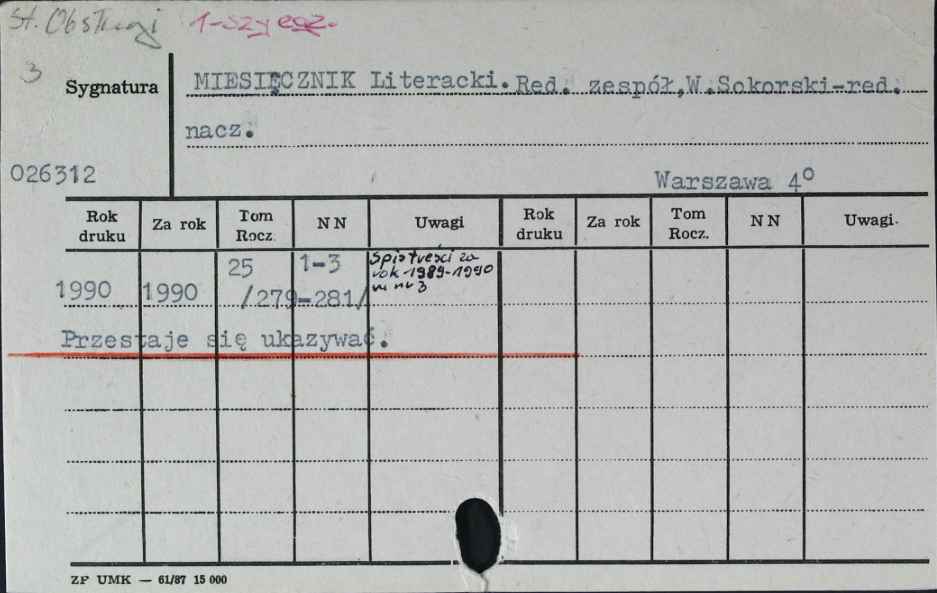 St. Obsługi 1-szy egz.
3
Sygnatura MIESIĘCZNIK Literacki. Red. zespół, W. Sokorski-red.
nacz.
026312 Warszawa 4°
Rok druku Za rok Tom Rocz. NN Uwagi Rok druku Za rok Tom Rocz. NN Uwagi.
1990 1990 25 /279-281/ 1-3 Spis treści za rok 1989-1990 w nr 3
Przestaje się ukazywać.
ZP UMK — 61/87 15 000